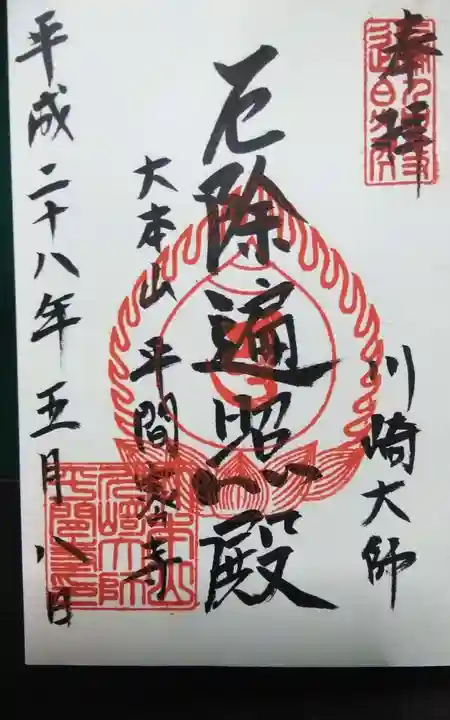 奉拝
川崎大師
厄除遍照殿
大本山 平間寺
平成二十八年五月八日